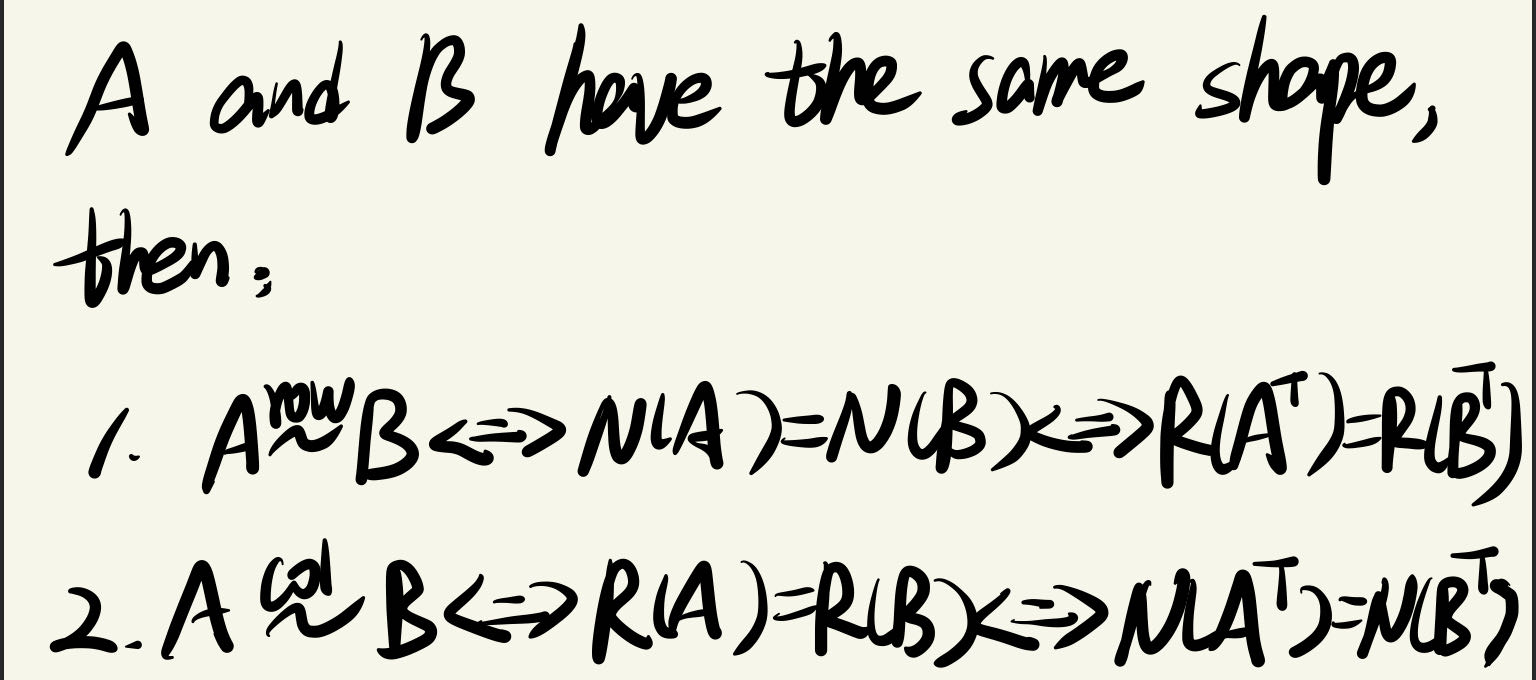 A and B have the same shape,
then:
1. A \overset{row}{\sim} B <=> N(A)=N(B) <=> R(A^T)=R(B^T)
2. A \overset{col}{\sim} B <=> R(A)=R(B) <=> N(A^T)=N(B^T)